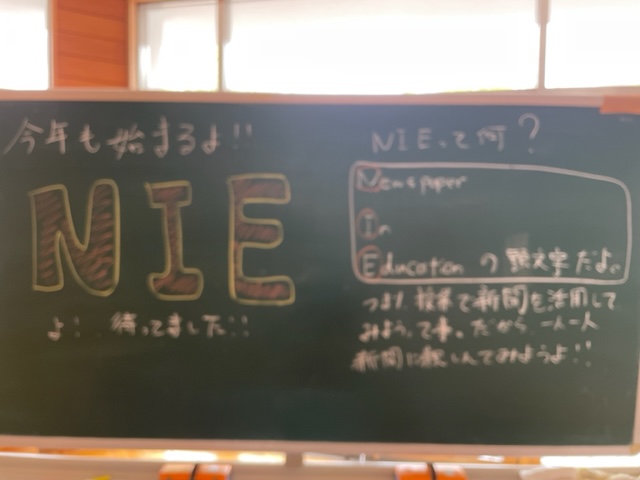 今年も始まるよ!!
NIE
よ! 待ってました!!
NIEって何?
Newspaper
In
Educationの頭文字だよ。
つまり、授業で新聞を活用して
みようって事。だから、一人一人
新聞に親しんでみようよ!!